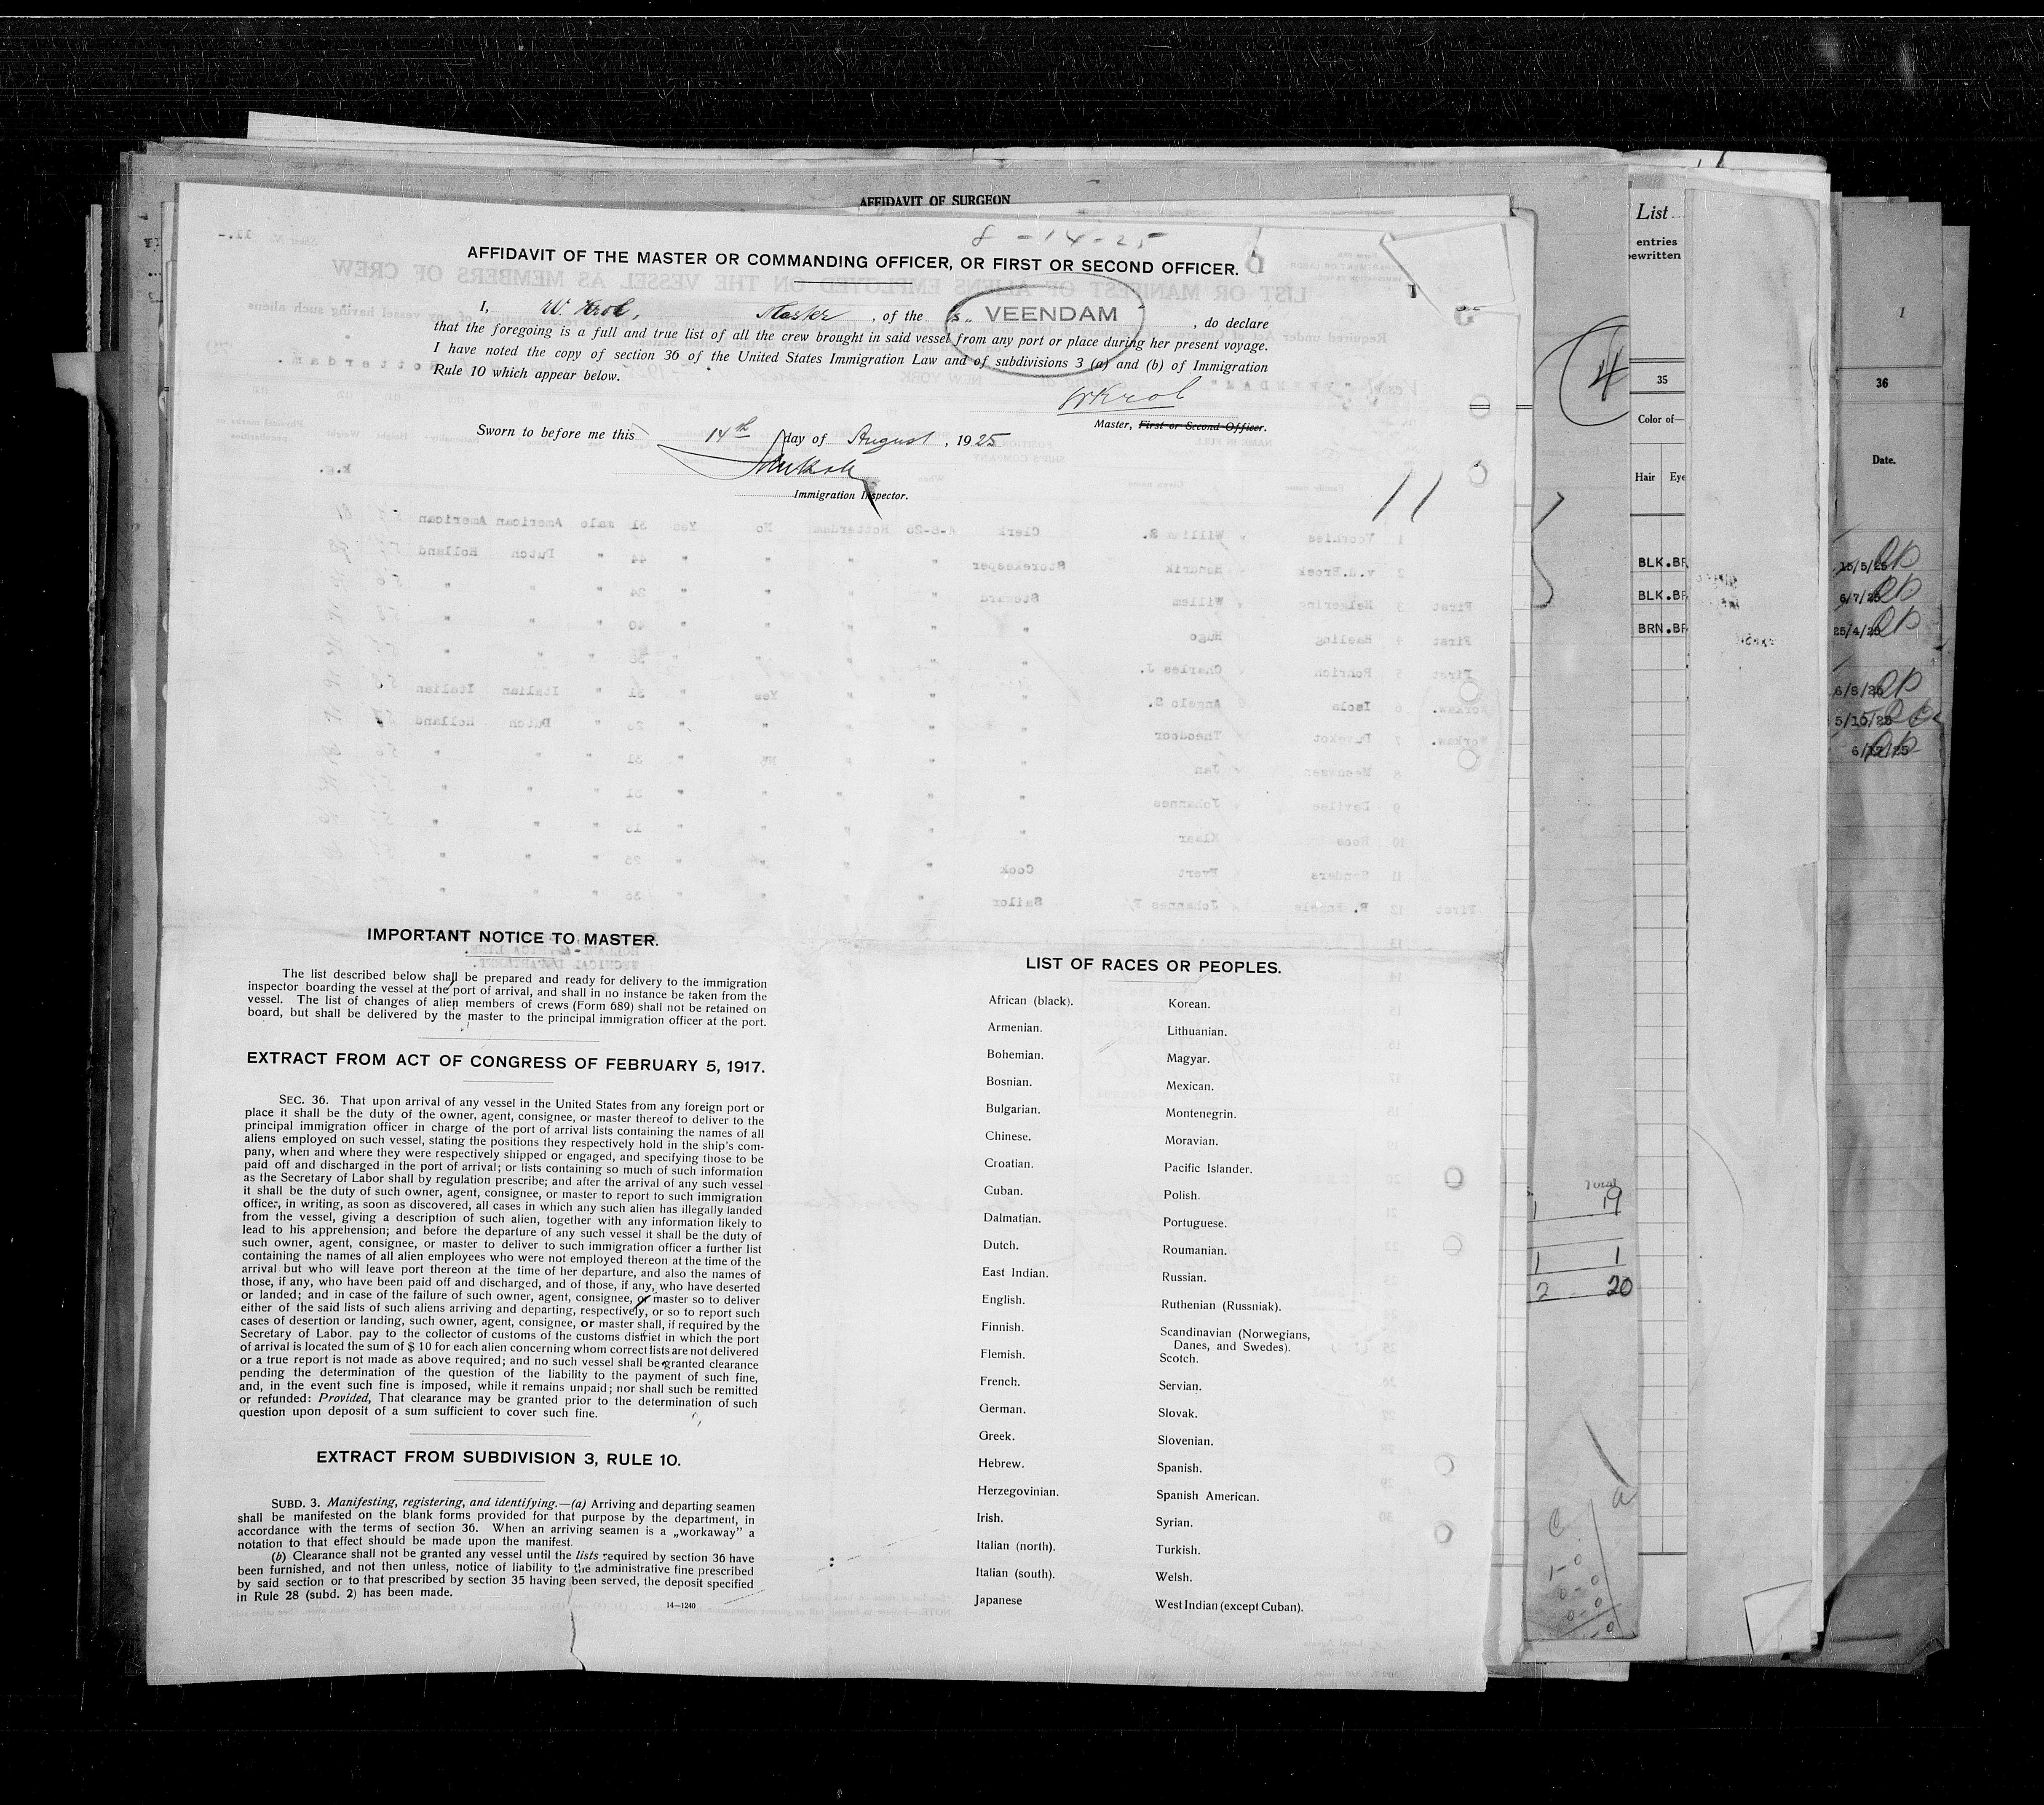 AFFIDAVIT OF SURGEON
8-14-25
AFFIDAVIT OF THE MASTER OR COMMANDING OFFICER, OR FIRST OR SECOND OFFICER.
I, W. Krol, Master, of the s.. VEENDAM, do declare
that the foregoing is a full and true list of all the crew brought in said vessel from any port or place during her present voyage.
I have noted the copy of section 36 of the United States Immigration Law and of subdivisions 3 (a) and (b) of Immigration
Rule 10 which appear below.
WKrol
Master, First or Second Officer.
Sworn to before me this 14th day of August, 1925
Immigration Inspector.
11
IMPORTANT NOTICE TO MASTER.
The list described below shall be prepared and ready for delivery to the immigration
inspector boarding the vessel at the port of arrival, and shall in no instance be taken from the
vessel. The list of changes of alien members of crews (Form 689) shall not be retained on
board, but shall be delivered by the master to the principal immigration officer at the port.
EXTRACT FROM ACT OF CONGRESS OF FEBRUARY 5, 1917.
SEC. 36. That upon arrival of any vessel in the United States from any foreign port or
place it shall be the duty of the owner, agent, consignee, or master thereof to deliver to the
principal immigration officer in charge of the port of arrival lists containing the names of all
aliens employed on such vessel, stating the positions they respectively hold in the ship's com-
pany, when and where they were respectively shipped or engaged, and specifying those to be
paid off and discharged in the port of arrival; or lists containing so much of such information
as the Secretary of Labor shall by regulation prescribe; and after the arrival of any such vessel
it shall be the duty of such owner, agent, consignee, or master to report to such immigration
officer, in writing, as soon as discovered, all cases in which any such alien has illegally landed
from the vessel, giving a description of such alien, together with any information likely to
lead to his apprehension; and before the departure of any such vessel it shall be the duty of
such owner, agent, consignee, or master to deliver to such immigration officer a further list
containing the names of all alien employees who were not employed thereon at the time of the
arrival but who will leave port thereon at the time of her departure, and also the names of
those, if any, who have been paid off and discharged, and of those, if any, who have deserted
or landed; and in case of the failure of such owner, agent, consignee, or master so to deliver
either of the said lists of such aliens arriving and departing, respectively, or so to report such
cases of desertion or landing, such owner, agent, consignee, or master shall, if required by the
Secretary of Labor, pay to the collector of customs of the customs district in which the port
of arrival is located the sum of $ 10 for each alien concerning whom correct lists are not delivered
or a true report is not made as above required; and no such vessel shall be granted clearance
pending the determination of the question of the liability to the payment of such fine,
and, in the event such fine is imposed, while it remains unpaid; nor shall such be remitted
or refunded: Provided, That clearance may be granted prior to the determination of such
question upon deposit of a sum sufficient to cover such fine.
EXTRACT FROM SUBDIVISION 3, RULE 10.
SUBD. 3. Manifesting, registering, and identifying.—(a) Arriving and departing seamen
shall be manifested on the blank forms provided for that purpose by the department, in
accordance with the terms of section 36. When an arriving seamen is a „workaway" a
notation to that effect should be made upon the manifest.
(b) Clearance shall not be granted any vessel until the lists required by section 36 have
been furnished, and not then unless, notice of liability to the administrative fine prescribed
by said section or to that prescribed by section 35 having been served, the deposit specified
in Rule 28 (subd. 2) has been made.
14—1240
LIST OF RACES OR PEOPLES.
African (black).
Armenian.
Bohemian.
Bosnian.
Bulgarian.
Chinese.
Croatian.
Cuban.
Dalmatian.
Dutch.
East Indian.
English.
Finnish.
Flemish.
French.
German.
Greek.
Hebrew.
Herzegovinian.
Irish.
Italian (north).
Italian (south).
Japanese
Korean.
Lithuanian.
Magyar.
Mexican.
Montenegrin.
Moravian.
Pacific Islander.
Polish.
Portuguese.
Roumanian.
Russian.
Ruthenian (Russniak).
Scandinavian (Norwegians,
Danes, and Swedes).
Scotch.
Servian.
Slovak.
Slovenian.
Spanish.
Spanish American.
Syrian.
Turkish.
Welsh.
West Indian (except Cuban).
4
Total
1 19
1 1
2 20
List
entries
35
Color of—
Hair Eye
BLK.BR
BLK.BR
BRN.BR
1
36
Date.
15/5/25
6/7/25
25/4/25
6/8/25
5/10/25